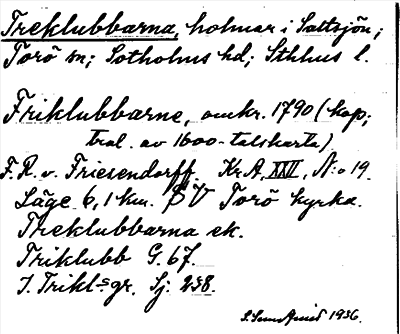 Treklubbarna, holmar i Saltsjön;
Torö sn; Sotholms hd; Sthlms l.
Friklubbarne, omkr. 1790 (kop;
tral. av 1600-talskarta)
F. R. v. Friesendorff. Kr. A, XXII, N:o 19.
Läge 6,1 km. SV Torö kyrka.
Treklubbarna ek.
Triklubb G. 67.
J. Trikl-s gr. Sj. 238.
1936.